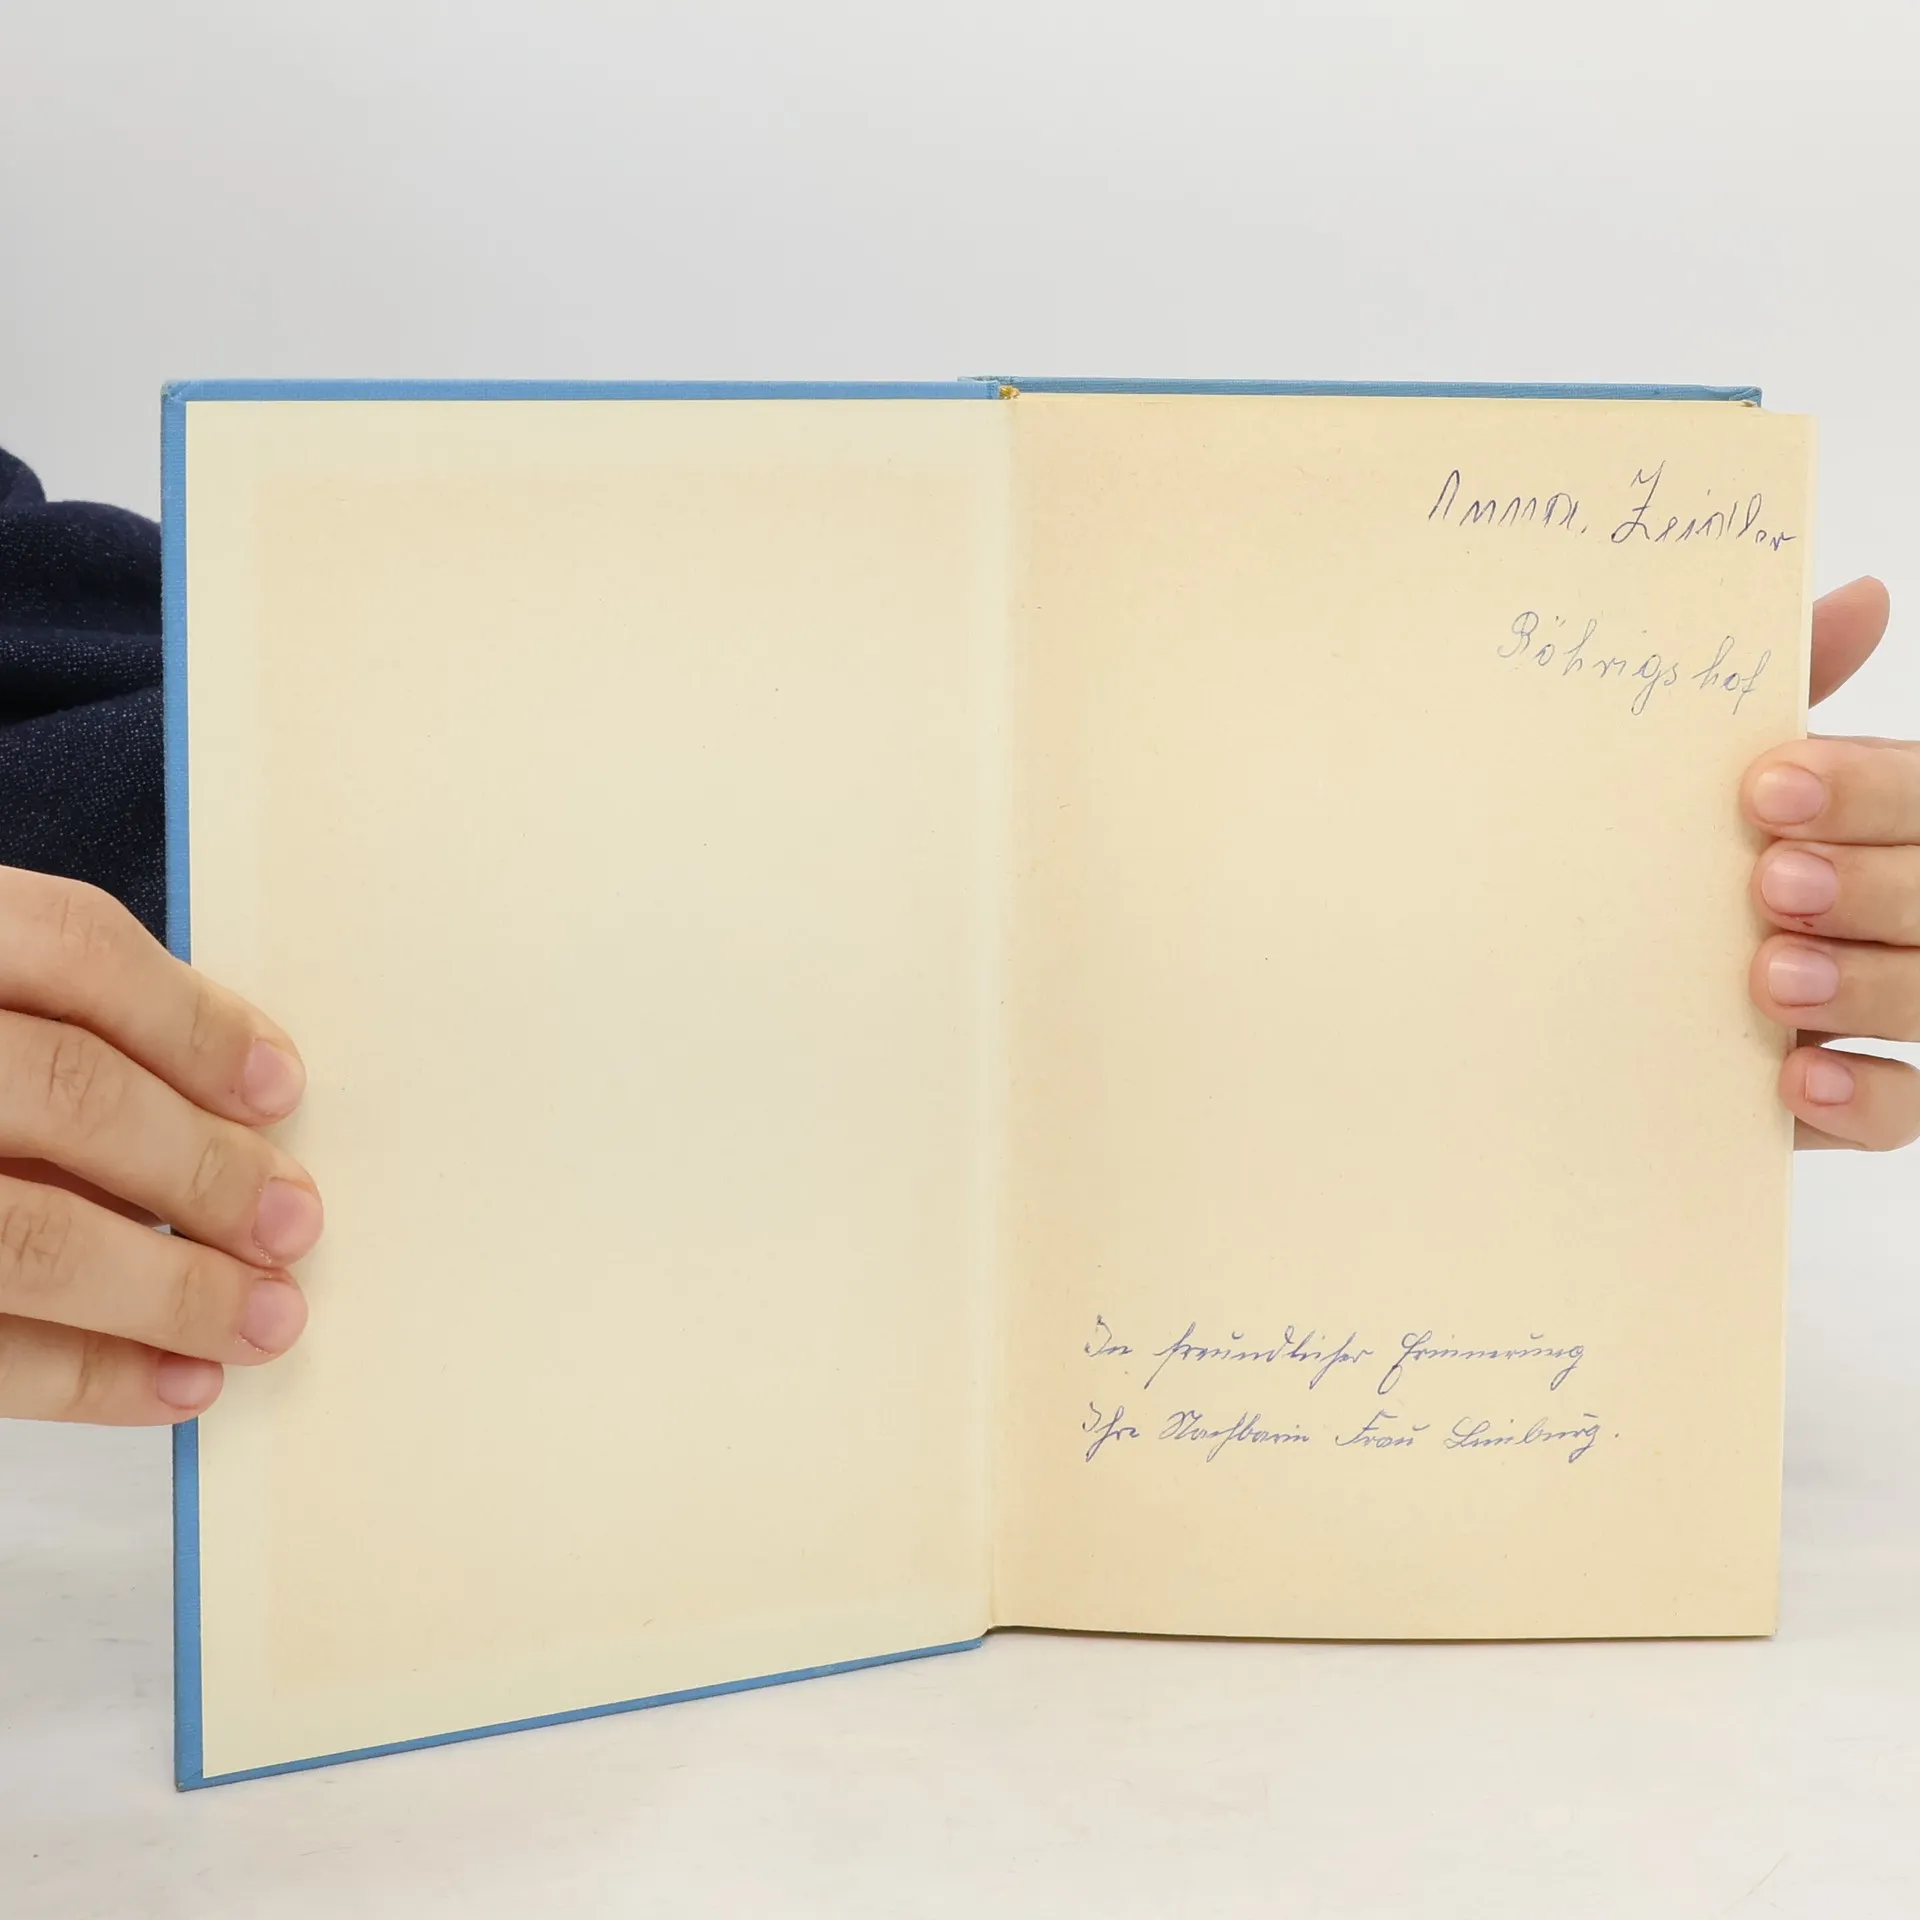 Anna Zeidler
Röhrigshof
In freundlicher Erinnerung
Ihre Nachbarin Frau Limburg.